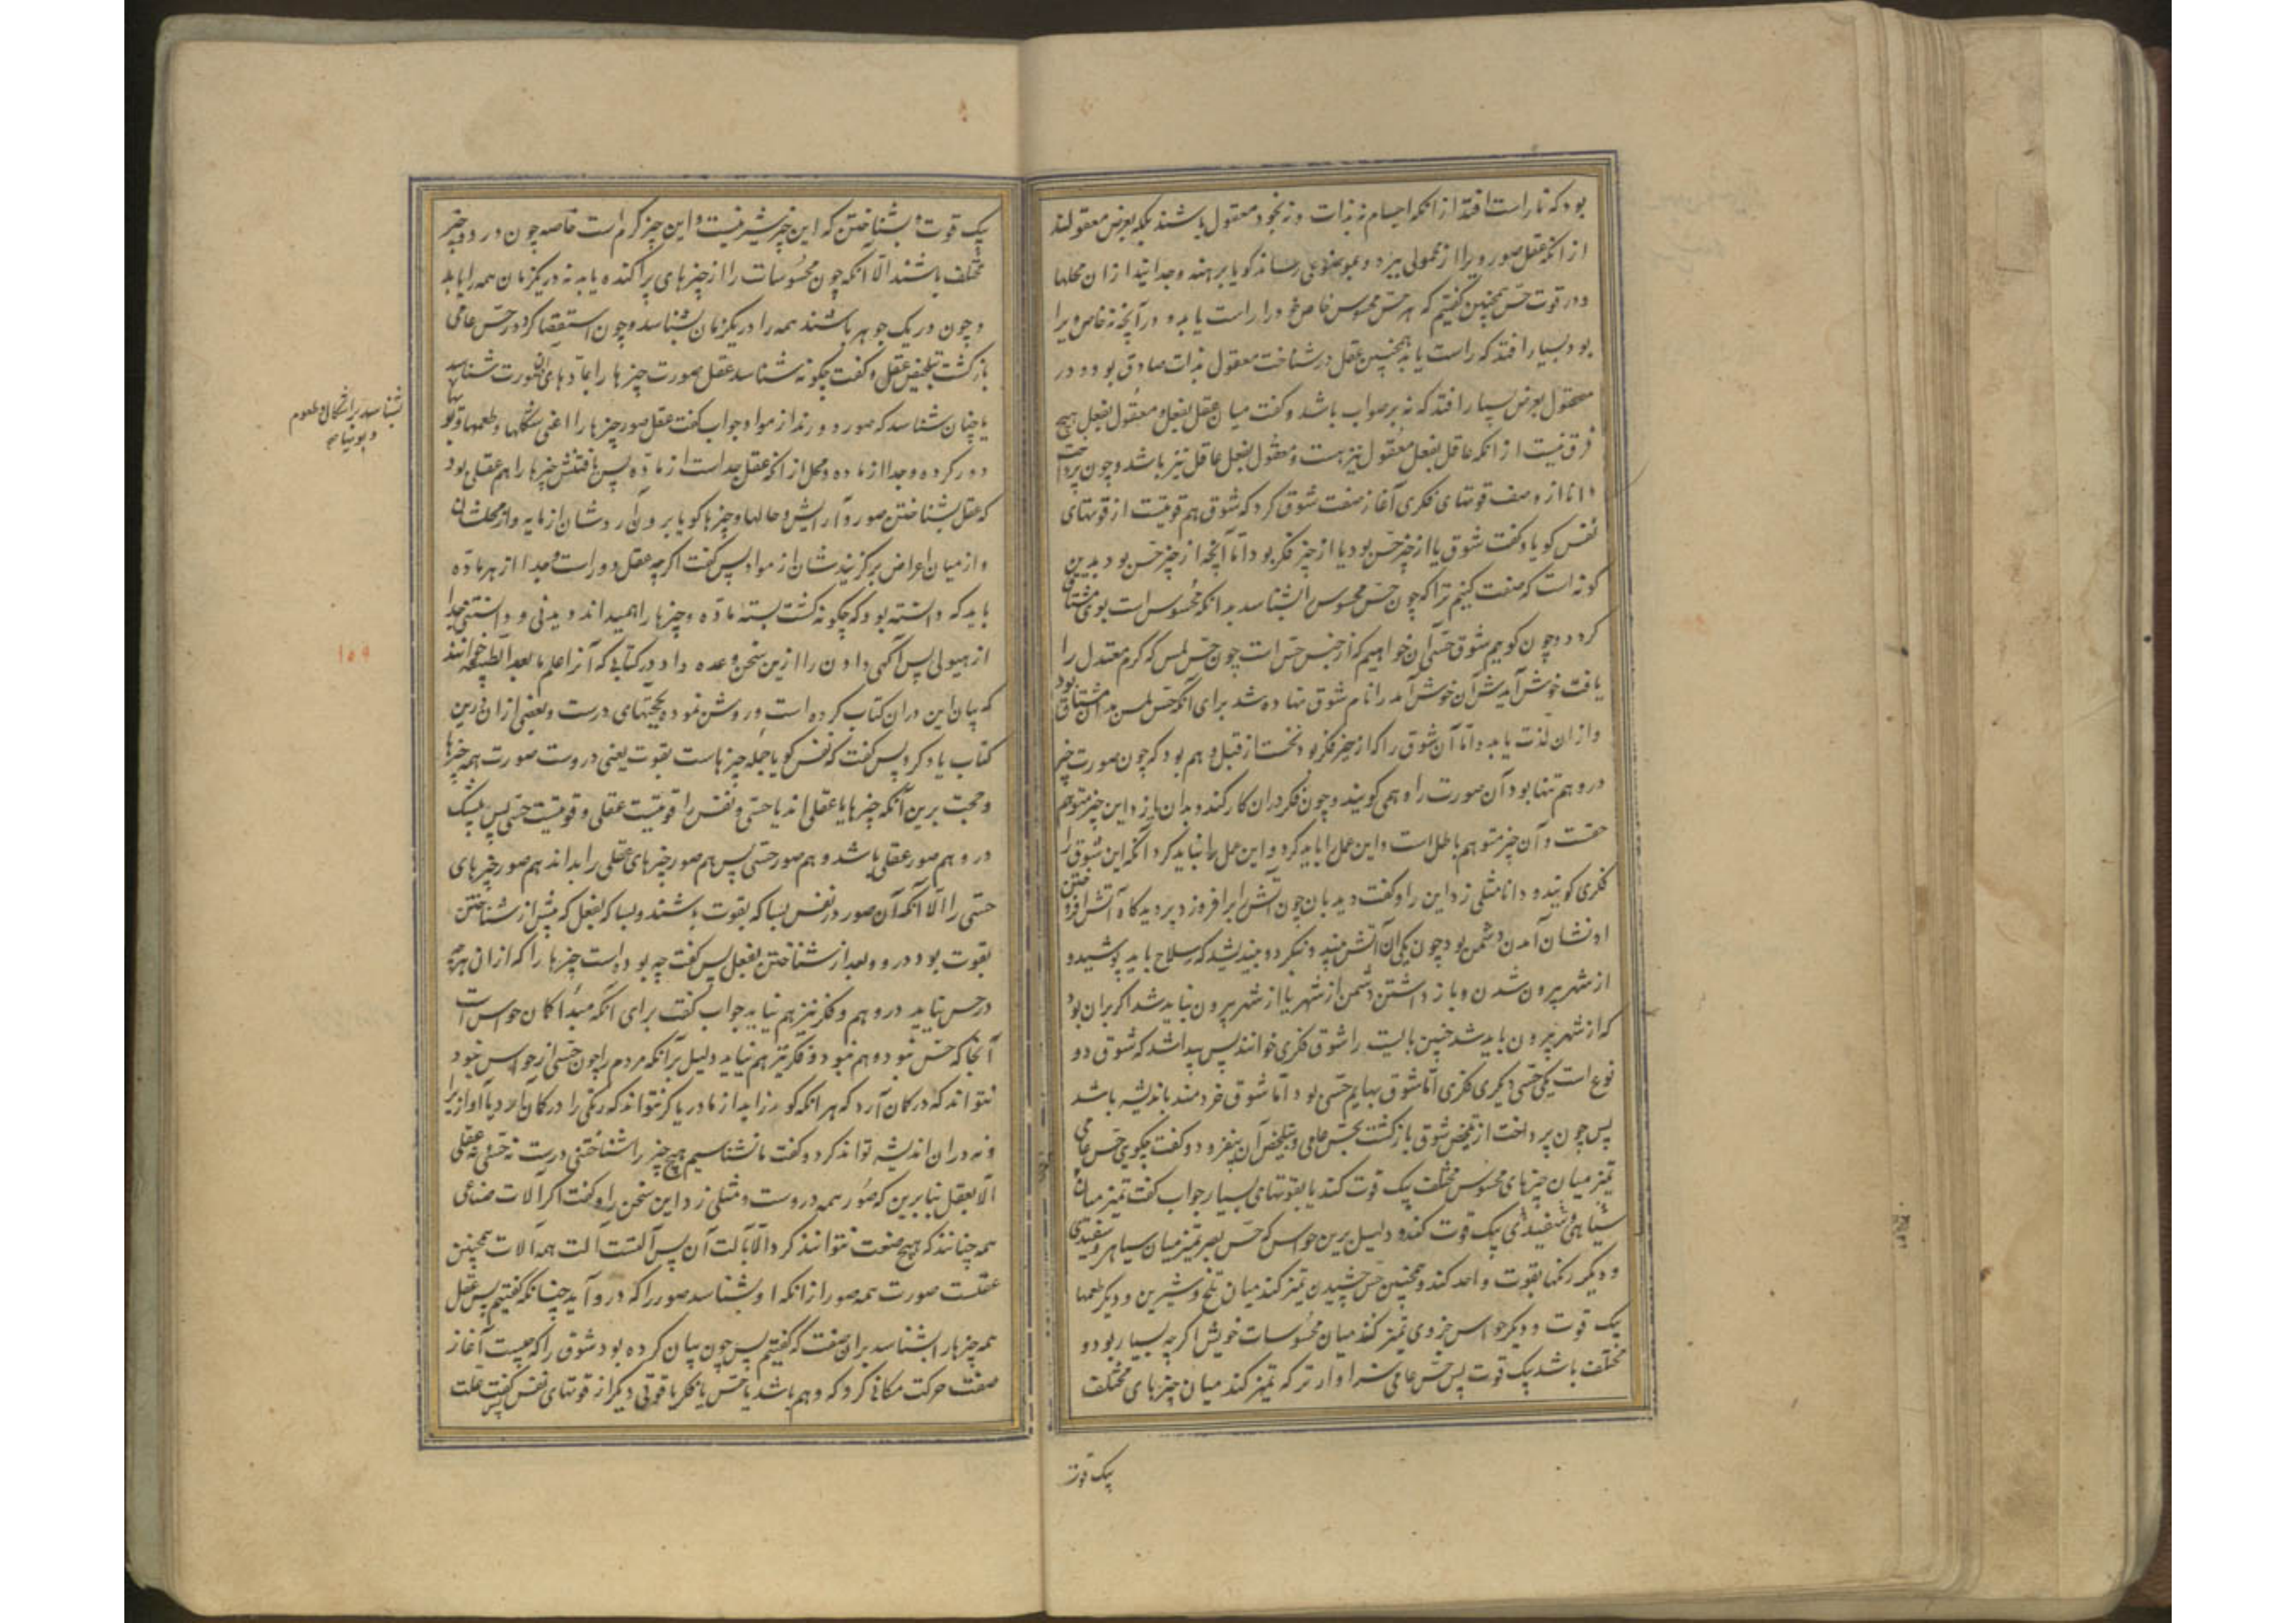 بود که نا راست افتد از انکه اجسام نه بذات و نه بخود معقول باشند بلکه بعرض معقولند
از انکه عقل صور ویرا از محمولی ببرد و بموضوعی رساند کویا برهنه و جدا بیند از ان محلها
و در قوت حس همچنین کفتیم که هر حس محسوس خاص خود را راست یابد و در آنچه نه خاص ویرا
بود بسیار افتد که راست یابد همچنین عقل در شناخت معقول بذات صادق بود و در
معقول بعرض بسیار افتد که نه بر صواب باشد و کفت میان عقل بفعل و معقول بفعل هیچ
فرق نیست از انکه عاقل بفعل معقول نیز هست و معقول بفعل عاقل نیز باشد و چون پرداخت
دانا از وصف قوتهای فکری آغاز صفت شوق کرد که شوق هم قوتیست از قوتهای
نفس کویا و کفت شوق یا از چیز حس بود یا از چیز فکر بود اما آنچه از چیز حس بود بدین
کونه است که صفت کنیم ترا که چون حس محسوس را بشناسد بدانکه محسوس است بوی مشتاق
کردد و چون کوییم شوق حسی آن خواهیم که از جنس حس است چون حس لمس که کرم معتدل را
یافت خوش آیدش آن خوش آمد را نام شوق نهاده شد برای آنکه حس لمس بدان مشتاق بود
و از ان لذت یابد و اما آن شوق را که از چیز فکر بود نخست از قبل وهم بود که چون صورت چیز
در وهم تنها بود آن صورت را وهمی کویند و چون فکر در ان کار کند و بدان یازد این چیز متوهم
حقست و آن چیز متوهم باطل است و این عمل را باید کرد و این عمل را نباید کرد آنکه این شوق را
فکری کویند و دانا مثلی زد این را و کفت دیدبان چون آتش را برافروزد بر دیدکاه آتش افروختن
او نشان آمدن دشمن بود چون یکی آن آتش بیند و بنکرد و بیندیشد که سلاح باید پوشید و
از شهر بیرون شدن و باز داشتن دشمن از شهر یا از شهر بیرون نباید شد اکر بران بود
که از شهر بیرون باید شد چنین بایست را شوق فکری خوانند پس پیدا شد که شوق دو
نوع است یکی حسی دیکری فکری اما شوق بهایم حسی بود اما شوق خردمند باندیشه باشد
پس چون پرداخت از تلخیص شوق بازکشت بحس عامی و بتلخیص آن بیفزود و کفت چکویی حس عامی
تمیز میان چیزهای محسوس مختلف بیک قوت کند یا بقوتهای بسیار جواب کفت تمیز میان
سیاهی و سفیدی بیک قوت کند و دلیل برین حواس که حس بصر تمیز میان سیاهی و سفیدی
و دیکر رنکها بقوت واحد کند و همچنین حس چشیدن تمیز کند میان تلخ و شیرین و دیکر طعمها
بیک قوت و دیکر حواس جزوی تمیز کند میان محسوسات خویش اکرچه بسیار بود و
مختلف باشد بیک قوت پس حس عامی سزاوارتر که تمیز کند میان چیزهای مختلف
بیک قوت
بیک قوت و بشناختن که این چیز شیرینست و این چیز کرم است خاصه چون در دو چیز
مختلف باشند الا آنکه چون محسوسات را از چیزهای پراکنده یابد نه در یکزمان همه را یابد
و چون در یک جوهر باشند همه را در یکزمان بشناسد و چون استقصا کرد در حس عامی
بازکشت بتلخیص عقل و کفت چکونه شناسد عقل صورت چیزها را بمادهای ان صورت شناسد
یا چنان شناسد که صور دورند از مواد جواب کفت عقل صور چیزها را اعنی شکلها و طعمها و بویها
دور کرده و جدا از ماده و محل از انکه عقل جداست از ماده پس یافتنش چیزها را هم عقلی بود
که عقل بشناختن صور و آرایش و حالها و چیزها کویا برون آرد شان از مایه و از محلشان
و از میان اعراض برکزیندشان از مواد پس کفت اکرچه عقل دور است و جدا از هر ماده
باید که دانسته بود که چکونه کشت بسته ماده و چیزها را همیداند دیدنی و دانستنی جدا
از هیولی پس آکهی دادن را ازین سخن وعده داد در کتابی که آنرا علم ما بعد الطبیعه خوانند
که بیان این در ان کتاب کرده است و روشن نموده بحجتهای درست و بعضی از ان درین
کتاب یاد کرد پس کفت که نفس کویا جمله چیزهاست بقوت یعنی در وست صورت همه چیزها
و حجت برین آنکه چیزها یا عقلی اند یا حسی و نفس را قوتیست عقلی و قوتیست حسی پس بیشک
در و هم صور عقلی باشد و هم صور حسی پس هم صور چیزهای عقلی را بداند هم صور چیزهای
حسی را الا آنکه آن صور در نفس بسا که بقوت باشند و بسا که بفعل که پیش از شناختن
بقوت بود در و و بعد از شناختن بفعل پس کفت چه بوده است چیزها را که از ان هرچه
در حس نیاید در وهم و فکر نیز هم نیاید جواب کفت برای آنکه مبدا کان حواس است
آنجا که حس نبود وهم نبود و فکر نیز هم نیاید دلیل بر آنکه مردم را چون حسی از حواس نبود
نتواند که در کان آرد که هر انکه کور زاید از مادر یا کر نتواند که رنکی را در کان آرد یا آواز را
و نه در ان اندیشه تواند کرد و کفت ما نشناسیم هیچ چیز را شناختنی درست نه حسی نه عقلی
الا بعقل بنا برین که صور همه در وست و مثلی زد این سخن را و کفت اکر آلات صناعی
همه چنانند که هیچ صنعت نتوانند کرد الا بآلت آن پس آلتست آلت همه آلات همچنین
عقلست صورت همه صور از انکه او بشناسد صور را که در و آید چنانکه کفتیم پس عقل
همه چیزها را بشناسد بران صفت که کفتیم پس چون بیان کرده بود شوق را که چیست آغاز
صفت حرکت مکانی کرد که وهم باشد یا حس یا فکر یا قوتی دیکر از قوتهای نفس کفت علت
بشناسد بر اشکال و طعوم
۱۵۹